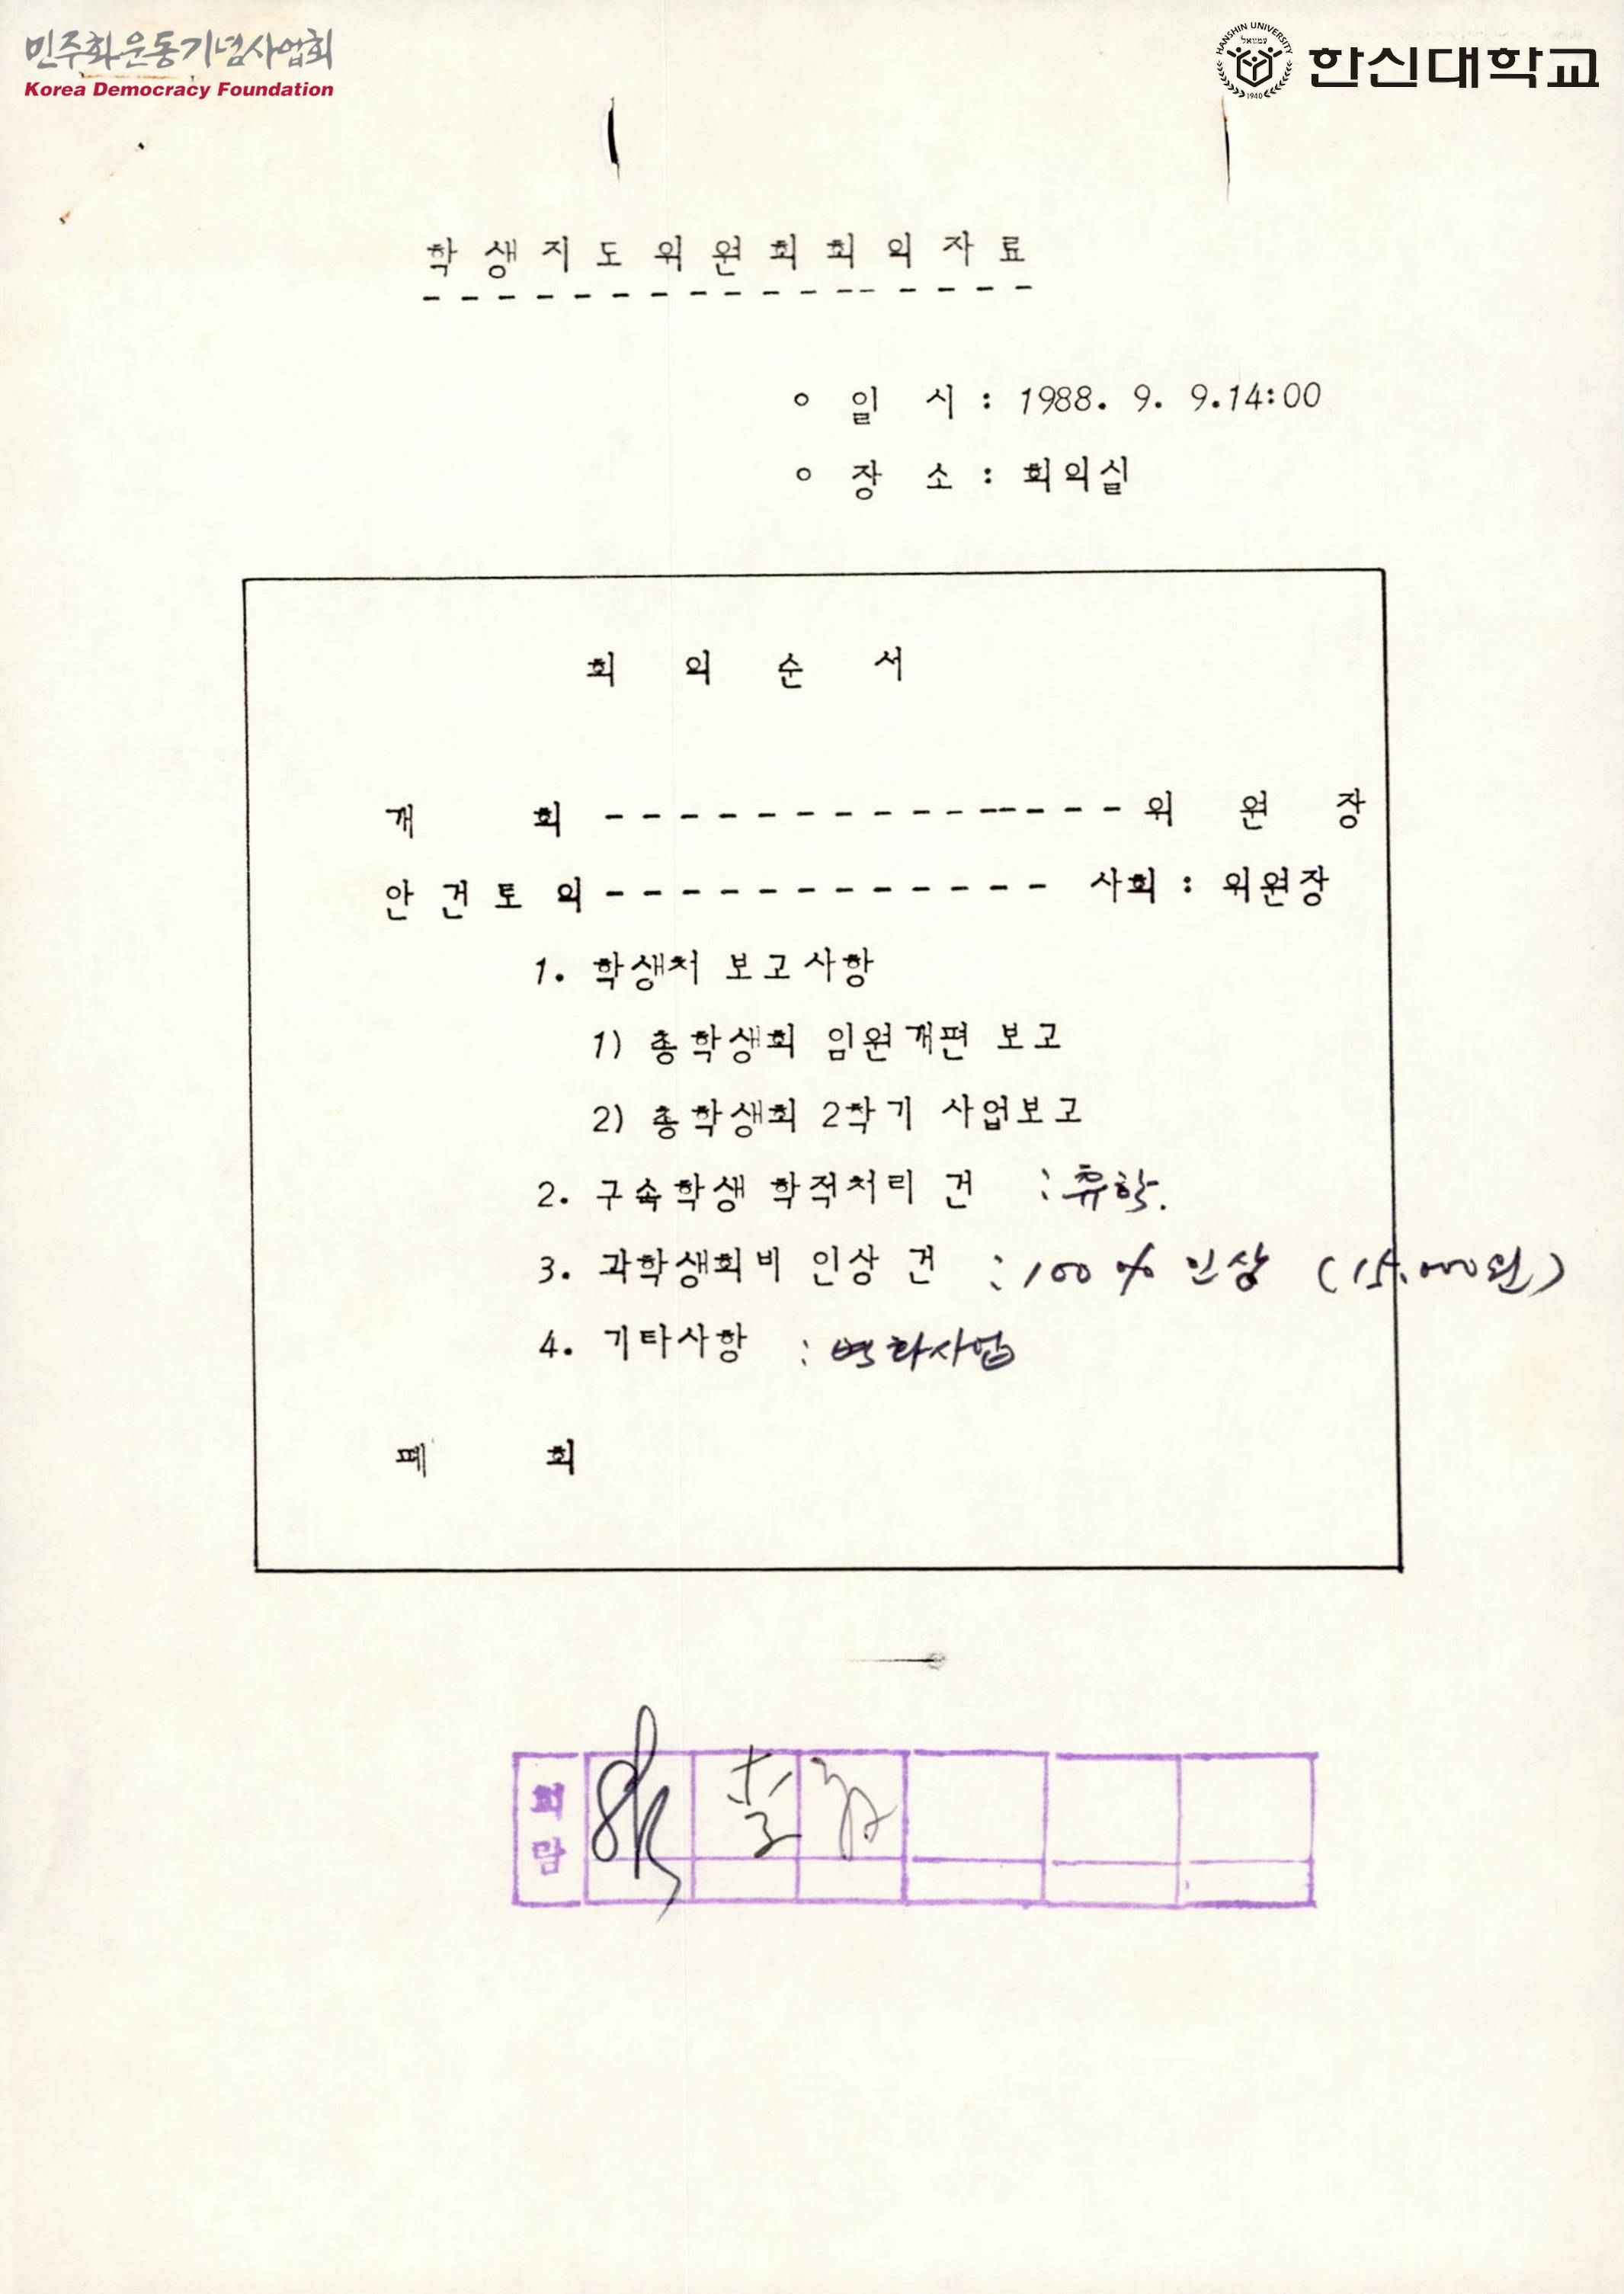 민주화운동기념사업회
Korea Democracy Foundation
HANSHIN UNIVERSITY
1940
한신대학교
학생지도위원회회의자료
---------------
○ 일 시 : 1988. 9. 9.14:00
○ 장 소 : 회의실
회 의 순 서
개 회 -------------- 위 원 장
안 건 토 의 ------------ 사회 : 위원장
1. 학생처 보고사항
1) 총학생회 임원개편 보고
2) 총학생회 2학기 사업보고
2. 구속학생 학적처리 건 : 휴학.
3. 과학생회비 인상 건 : 100% 인상 (15,000원)
4. 기타사항 : 벽화사업
폐 회
회
람